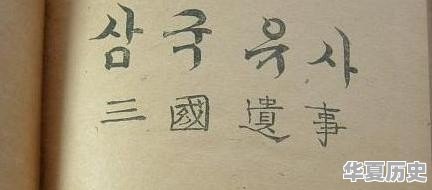 삼국유사
三國遺事
华夏历史